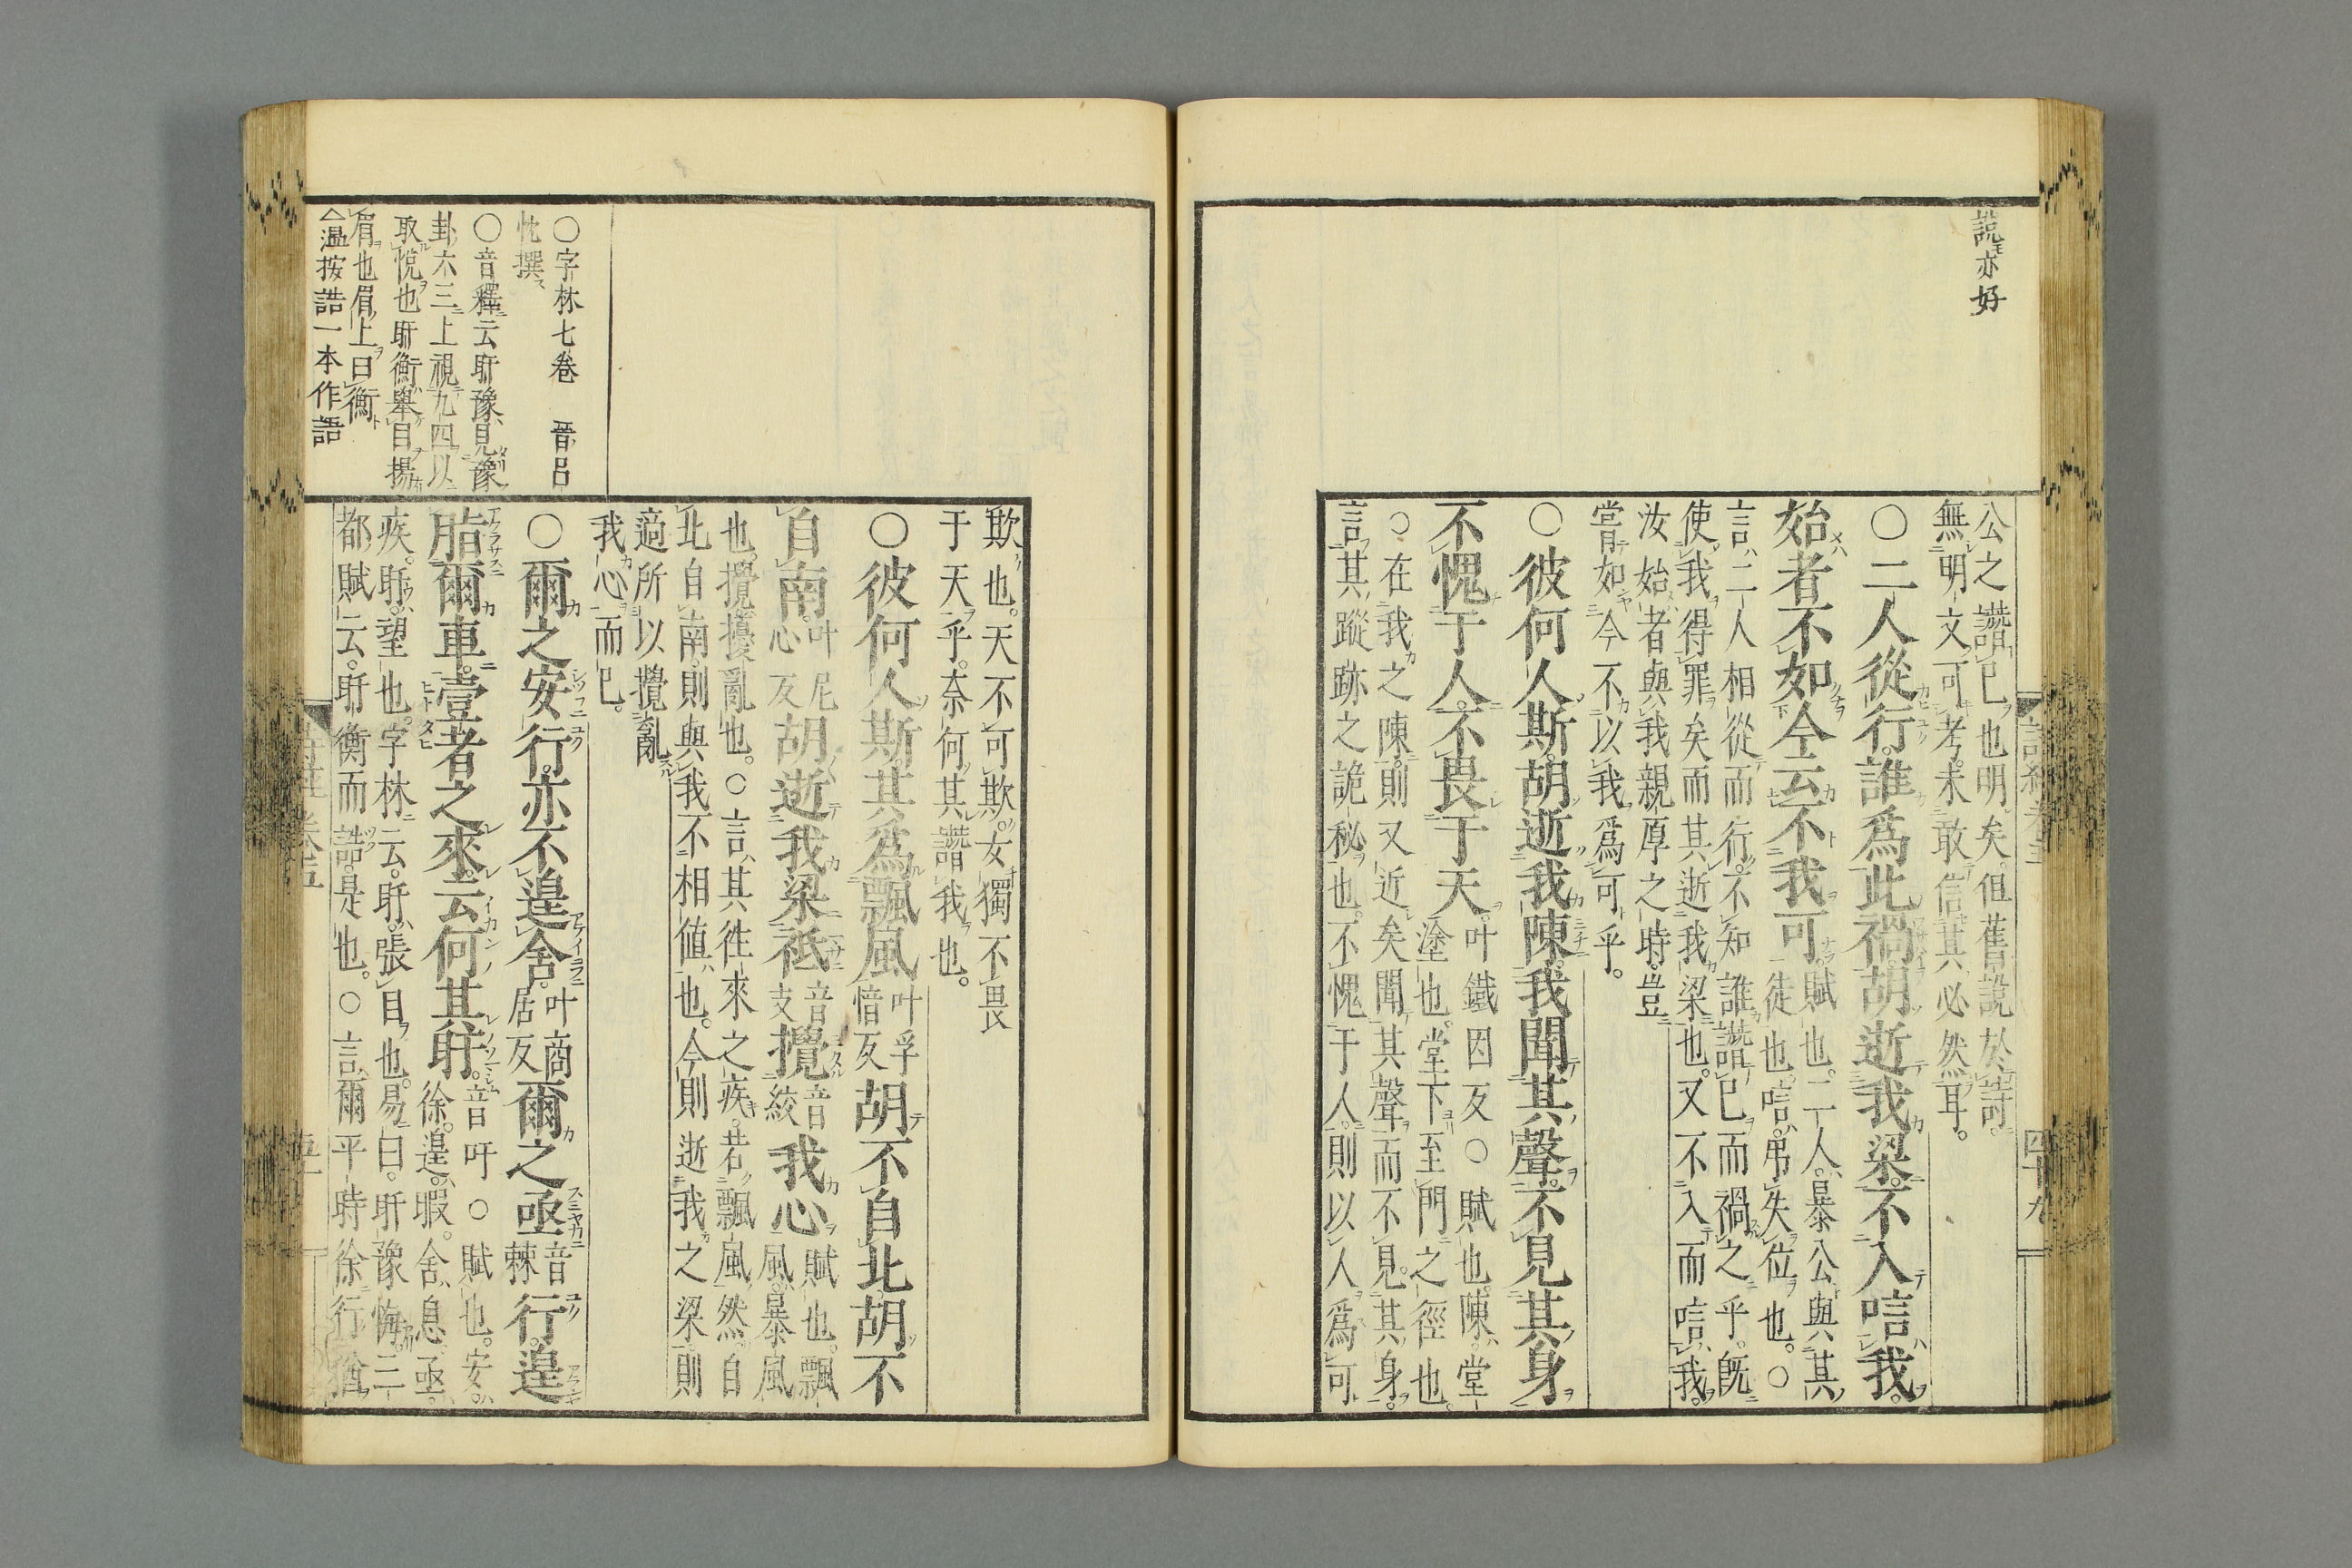 謊亦好
公之譖己也明矣但舊說於詩
無明文可考未敢信其必然耳
○二人從行誰爲此禍胡逝我梁不入唁我
始者不如今云不我可
賦也二人暴公與其
徒也唁弔失位也○
言二人相從而行不知誰譖己而禍之乎既
使我得罪矣而其逝我梁也又不入而唁我
汝始者與我親厚之時豈
嘗如今不以我爲可乎
○彼何人斯胡逝我陳我聞其聲不見其身
不愧于人不畏于天
叶鐵因反○賦也陳堂
塗也堂下至門之徑也
○在我之陳則又近矣聞其聲而不見其身
言其蹤跡之詭秘也不愧于人則以人爲可
詩經卷五
四十九
欺也天不可欺女獨不畏
于天乎奈何其譖我也
○彼何人斯其爲飄風
叶孚
愔反
胡不自北胡不
自南
叶尼
心反
胡逝我梁祇
音
支
攪
音
絞
我心
賦也飄
風暴風
也攪擾亂也○言其往來之疾若飄風然自
北自南則與我不相値也今則逝我之梁則
適所以攪亂
我心而已
○爾之安行亦不遑舍
叶商
居反
爾之亟
音
棘
行遑
脂爾車壹者之來云何其盱
音吁○賦也安
徐遑暇舍息亟
疾盱望也字林云盱張目也易曰盱豫悔三
都賦云盱衡而誥是也○言爾平時徐行猶
○字林七卷 晉呂
忱撰
○音釋云盱豫見豫
卦六三上視九四以
取悅也盱衡舉目揚
眉也眉上曰衡
△温按誥一本作語